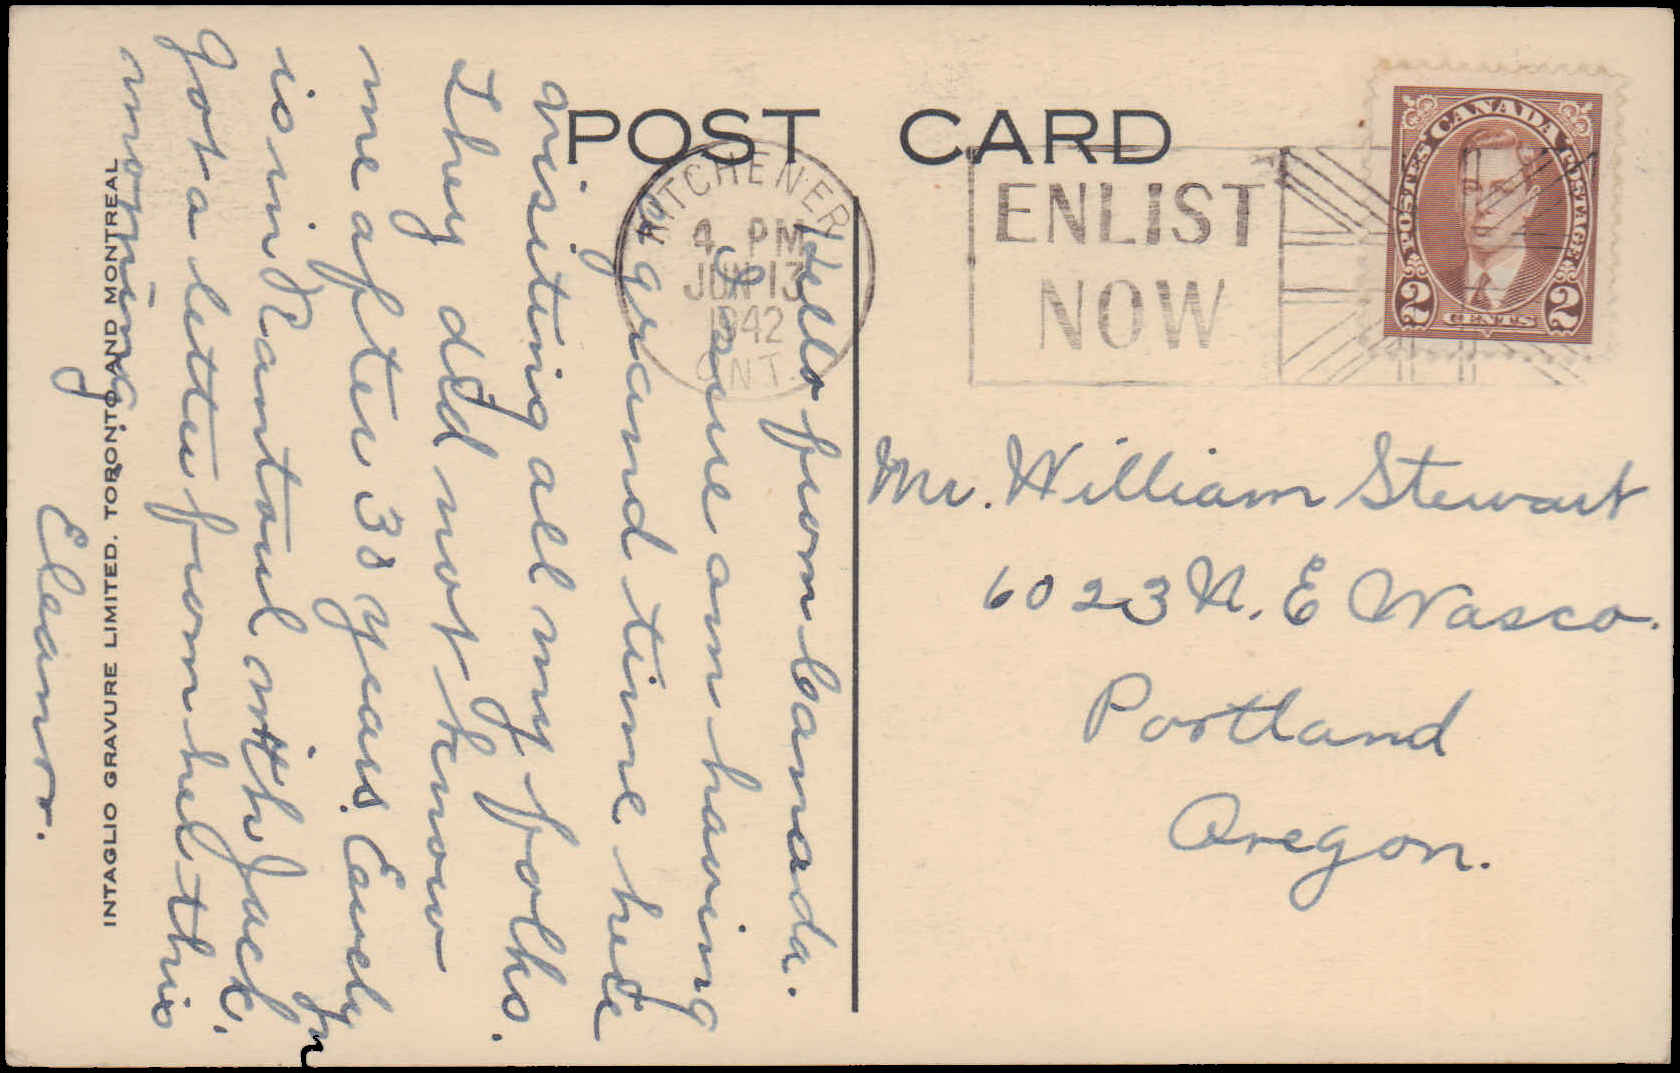 POST CARD
KITCHENER
4 PM
JUN 13
1942
ONT.
ENLIST
NOW
CANADA
POSTES POSTAGE
2 CENTS 2
Hello from Canada.
Sure am having
a grand time here
visiting all my folks.
They did not know
me after 38 years. Carolyn
is in Rantoul with Jack.
Got a letter from her this
morning.
Eleanor.
Mr. William Stewart
6023 N. E Wasco.
Portland
Oregon.
INTAGLIO GRAVURE LIMITED. TORONTO AND MONTREAL